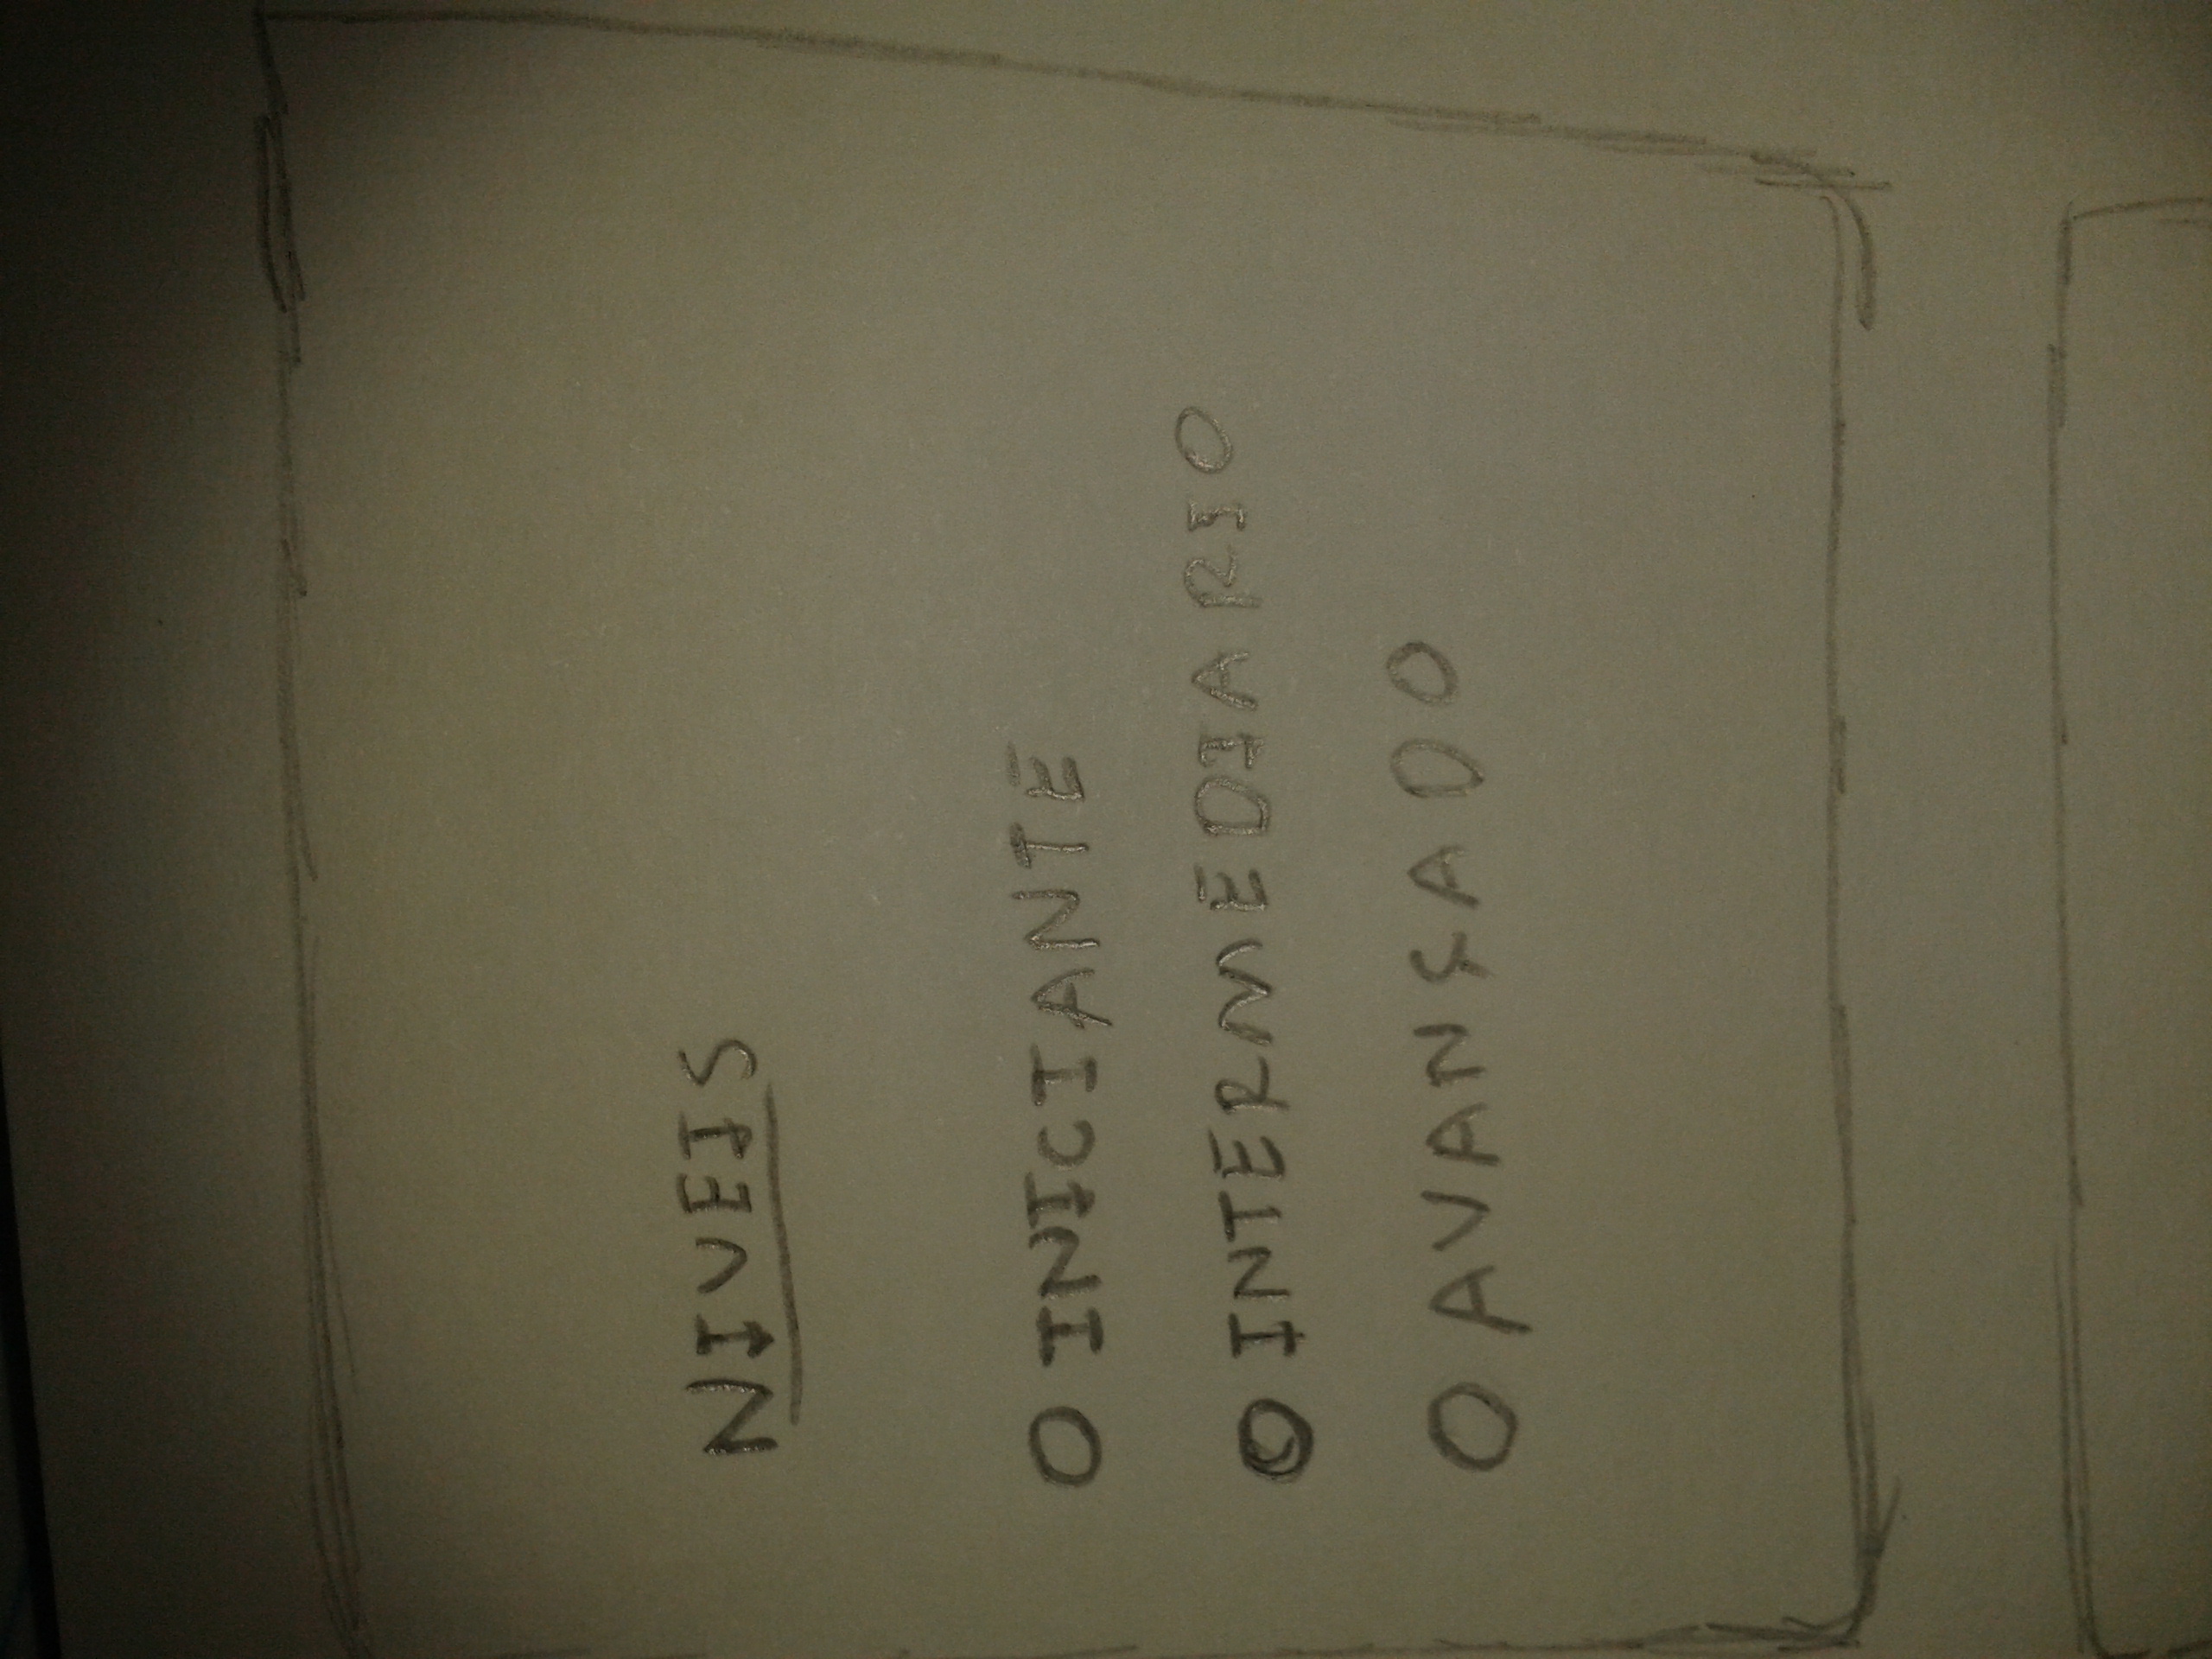 NIVEIS
O INICIANTE
O INTERMEDIARIO
O AVANSADO